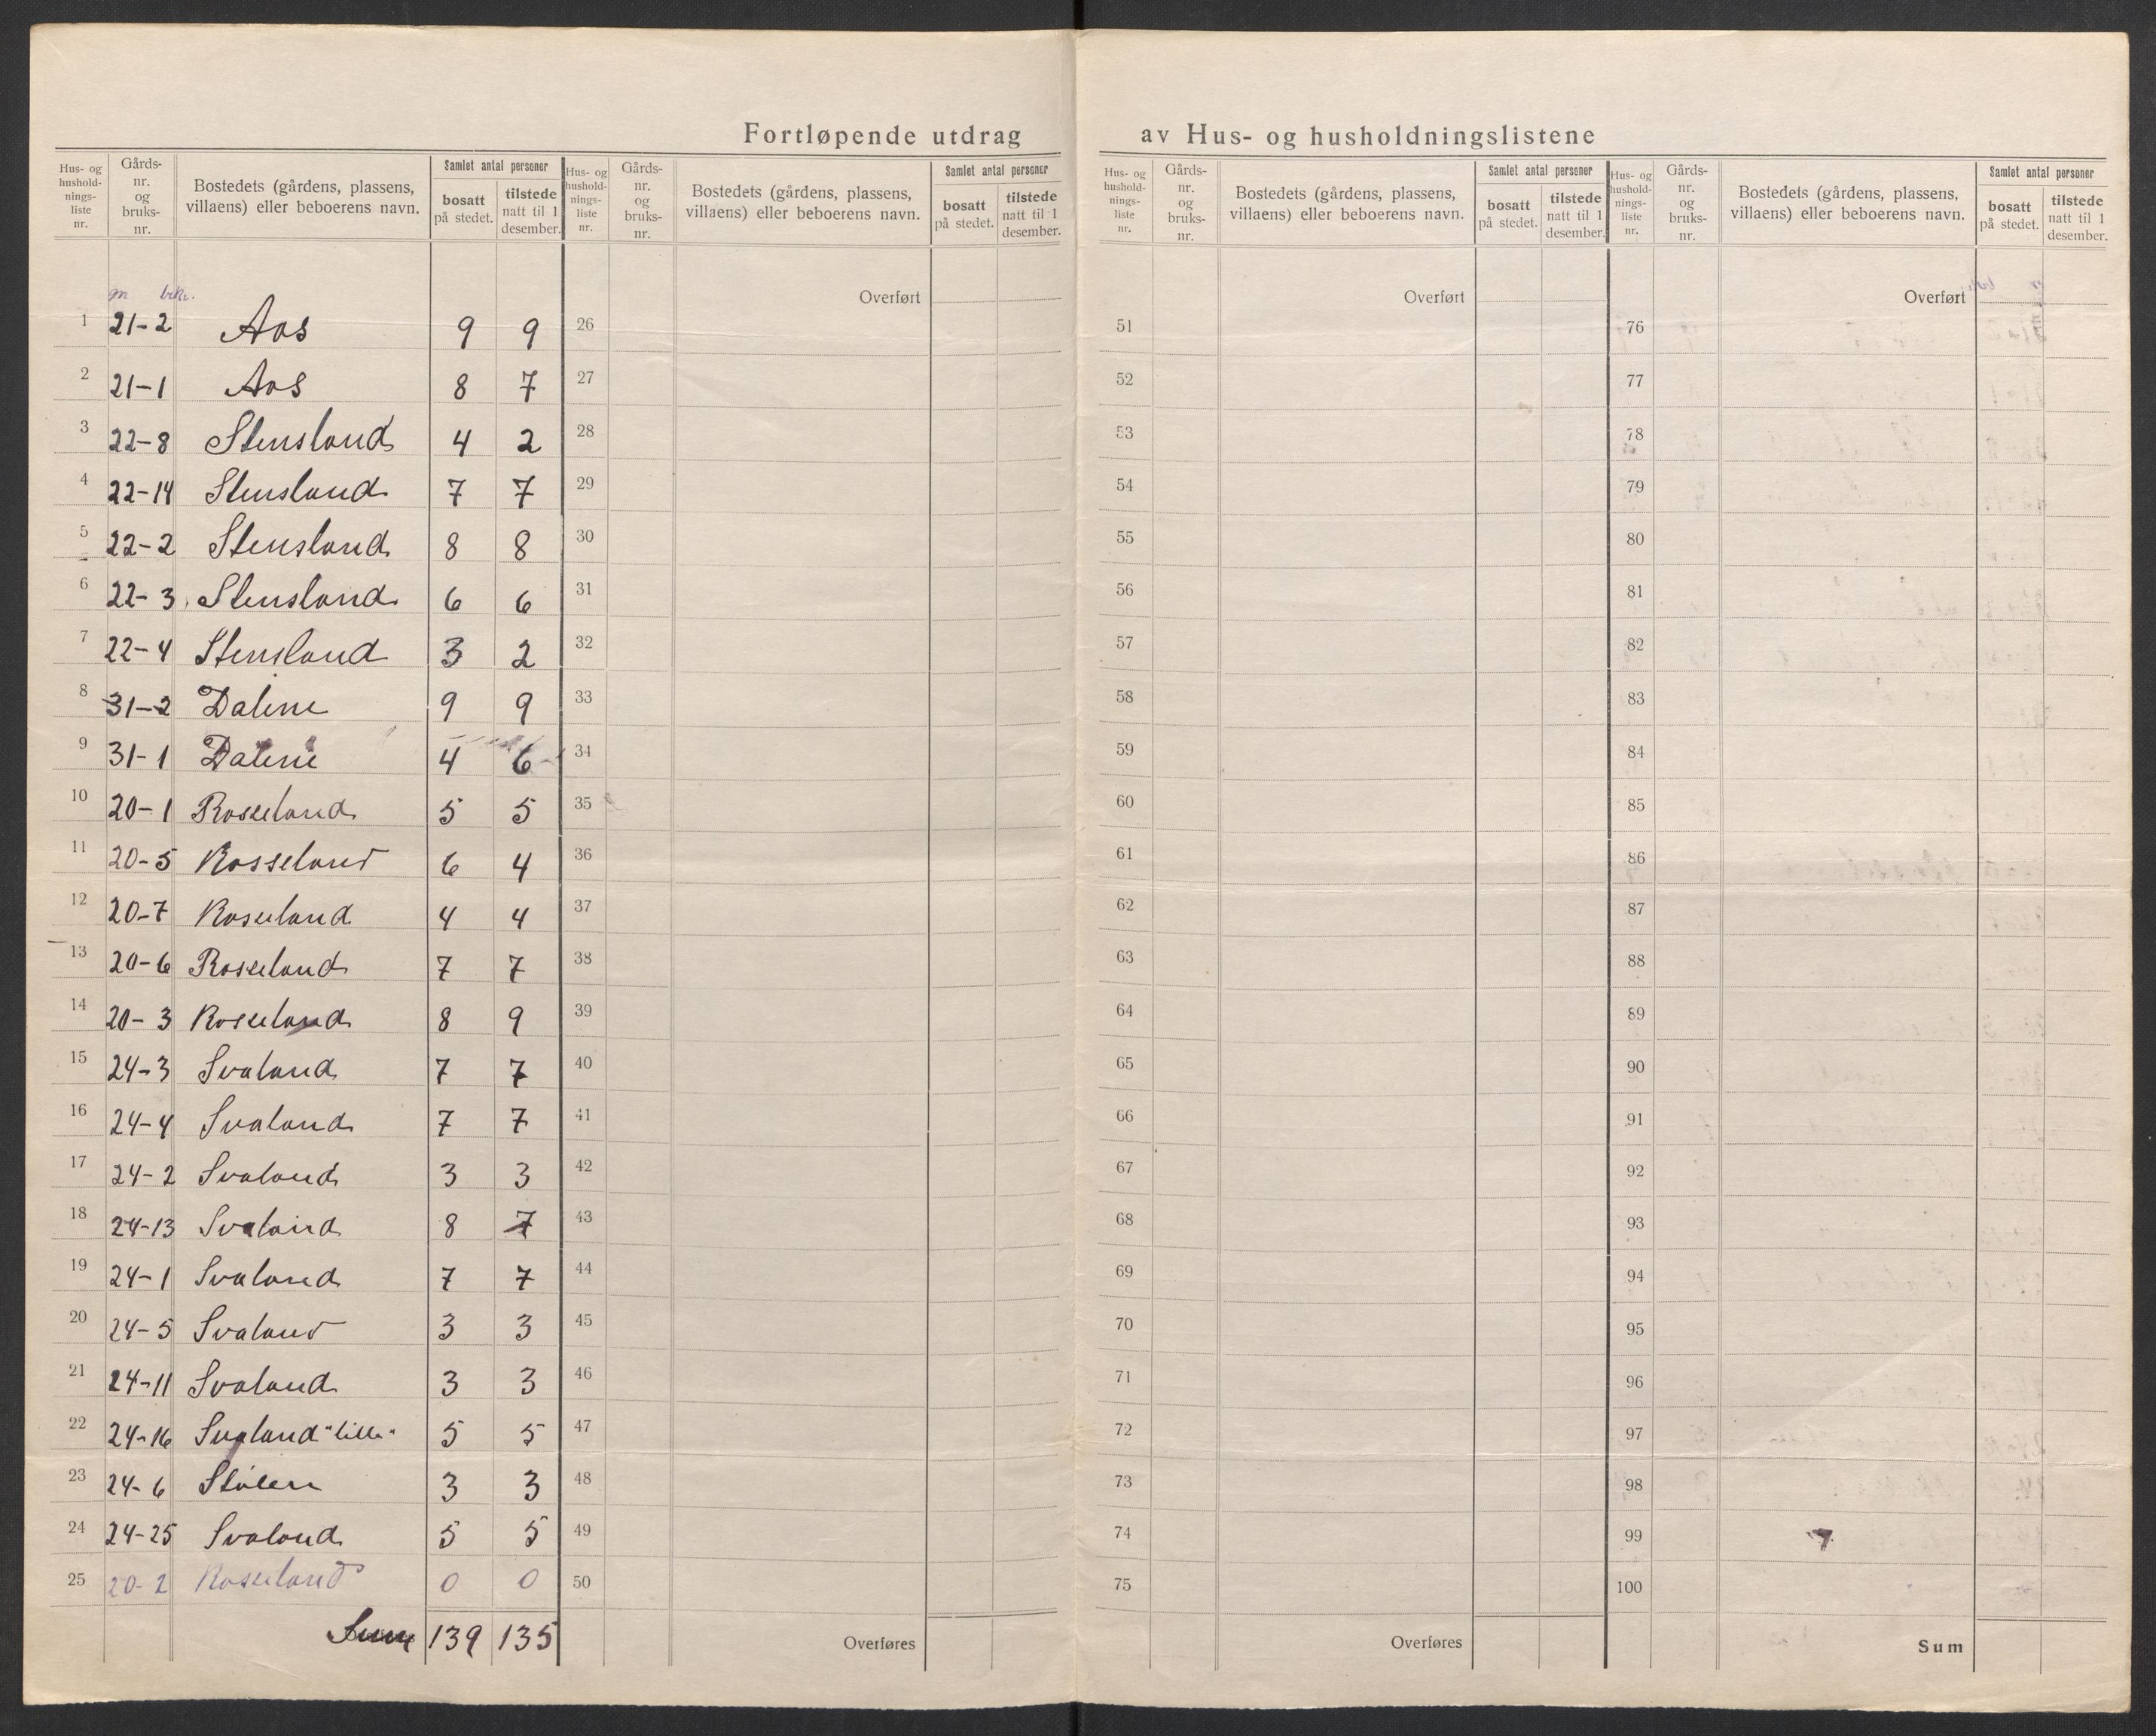 Fortløpende utdrag av Hus- og husholdningslistene
Hus- og hushold- nings- liste nr. Gårds- nr. og bruks- nr. Bostedets (gårdens, plassens, villaens) eller beboerens navn. Samlet antal personer bosatt på stedet. tilstede natt til 1 desember.
Hus- og hushold- nings- liste nr. Gårds- nr. og bruks- nr. Bostedets (gårdens, plassens, villaens) eller beboerens navn. Samlet antal personer bosatt på stedet. tilstede natt til 1 desember.
Hus- og hushold- nings- liste nr. Gårds- nr. og bruks- nr. Bostedets (gårdens, plassens, villaens) eller beboerens navn. Samlet antal personer bosatt på stedet. tilstede natt til 1 desember.
Hus- og hushold- nings- liste nr. Gårds- nr. og bruks- nr. Bostedets (gårdens, plassens, villaens) eller beboerens navn. Samlet antal personer bosatt på stedet. tilstede natt til 1 desember.
Overført Overført Overført
1 21-2 Aas 9 9 26 51 76
2 21-1 Aas 8 7 27 52 77
3 22-8 Stensland 4 2 28 53 78
4 22-14 Stensland 7 7 29 54 79
5 22-2 Stensland 8 8 30 55 80
6 22-3 Stensland 6 6 31 56 81
7 22-4 Stensland 3 2 32 57 82
8 31-2 Dalene 9 9 33 58 83
9 31-1 Dalene 4 6 34 59 84
10 20-1 Rosseland 5 5 35 60 85
11 20-5 Rosseland 6 4 36 61 86
12 20-7 Rosseland 4 4 37 62 87
13 20-6 Rosseland 7 7 38 63 88
14 20-3 Rosseland 8 9 39 64 89
15 24-3 Svaland 7 7 40 65 90
16 24-4 Svaland 7 7 41 66 91
17 24-2 Svaland 3 3 42 67 92
18 24-13 Svaland 8 7 43 68 93
19 24-1 Svaland 7 7 44 69 94
20 24-5 Svaland 3 3 45 70 95
21 24-11 Svaland 3 3 46 71 96
22 24-16 Svaland "lille" 5 5 47 72 97
23 24-6 Stölen 3 3 48 73 98
24 24-25 Svaland 5 5 49 74 99
25 20-2 Rosseland 0 0 50 75 100
Sum 139 135 Overføres Overføres Sum